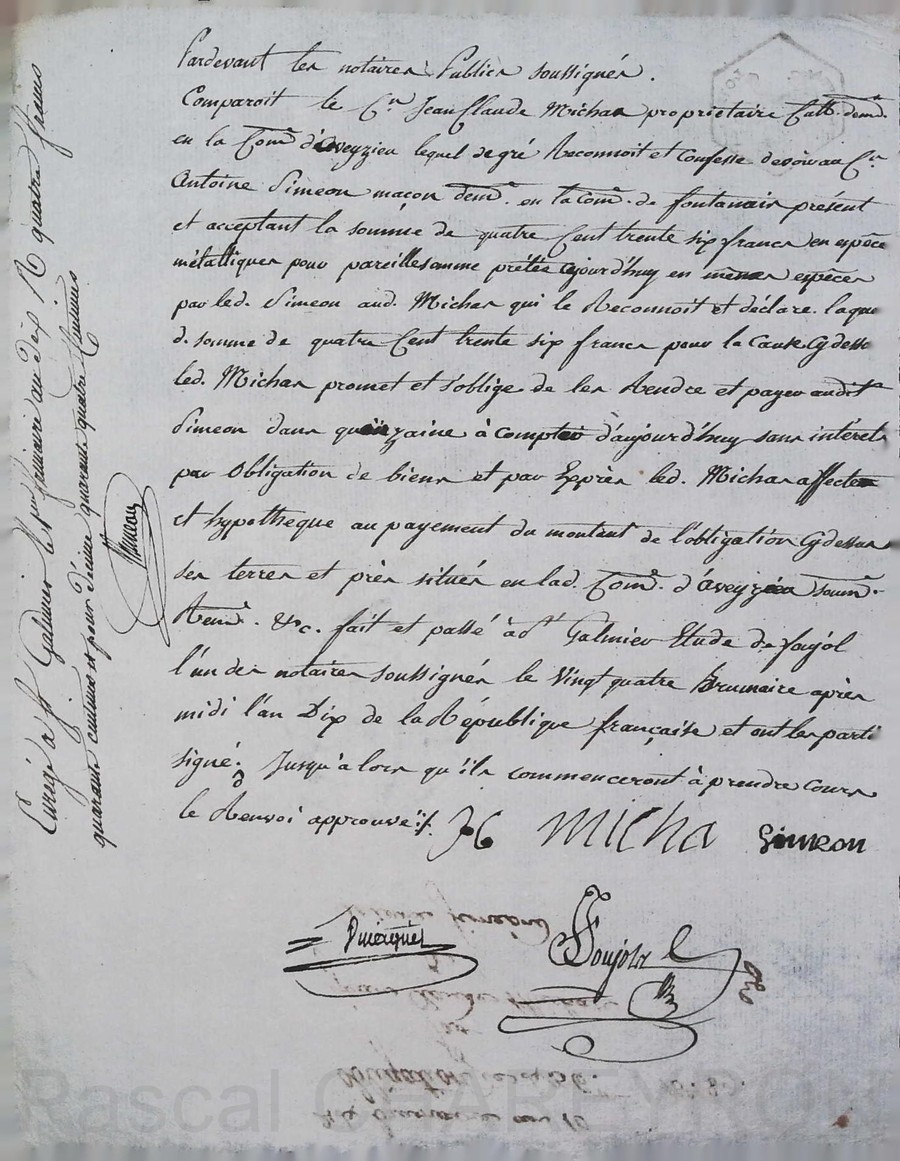 Pardevant les notaires Publics soussignés.
Comparoit le Cn. Jean Claude Michas propriétaire Cult. demt.
en la Come. d'aveyzieu lequel de gré Reconnoit et Confesse devoir au Cn.
Antoine Simeon maçon demt. en la Come. de fontanais présent
et acceptant la somme de quatre Cent trente six francs en espèce
métalliques pour pareille somme prêtée ajourd'huy en mêmes espèces
par led. Simeon aud. Michas qui le Reconnoit et déclare. laque
d. somme de quatre Cent trente six francs pour la Cause Cydesse
led. Michas promet et s'oblige de les Rendre et payer audit
Simeon dans quinzaine à Compter d'aujourd'huy sans intérêts
par Obligation de biens et par Exprès led. Michas affecte
et hypotheque au payement du montant de l'obligation Cydessus
ses terres et près situés en lad. Come. d'aveyzieu soum.
Renon. &c. fait et passé à St Galmier Etude de
l'un des notaires soussignés le Vingt quatre Brumaire après
midi l'an Dix de la République française et ont les parti
signé. Jusqu'alors qu'ils commenceront à prendre Cours
le Renvoi approuvé ./. JC Micha Simeon
Enregé à St. Galmier le frimaire an dix R quatre francs
quarante centimes et pour décime quarante quatre Centimes
Rascal CHAREYRON